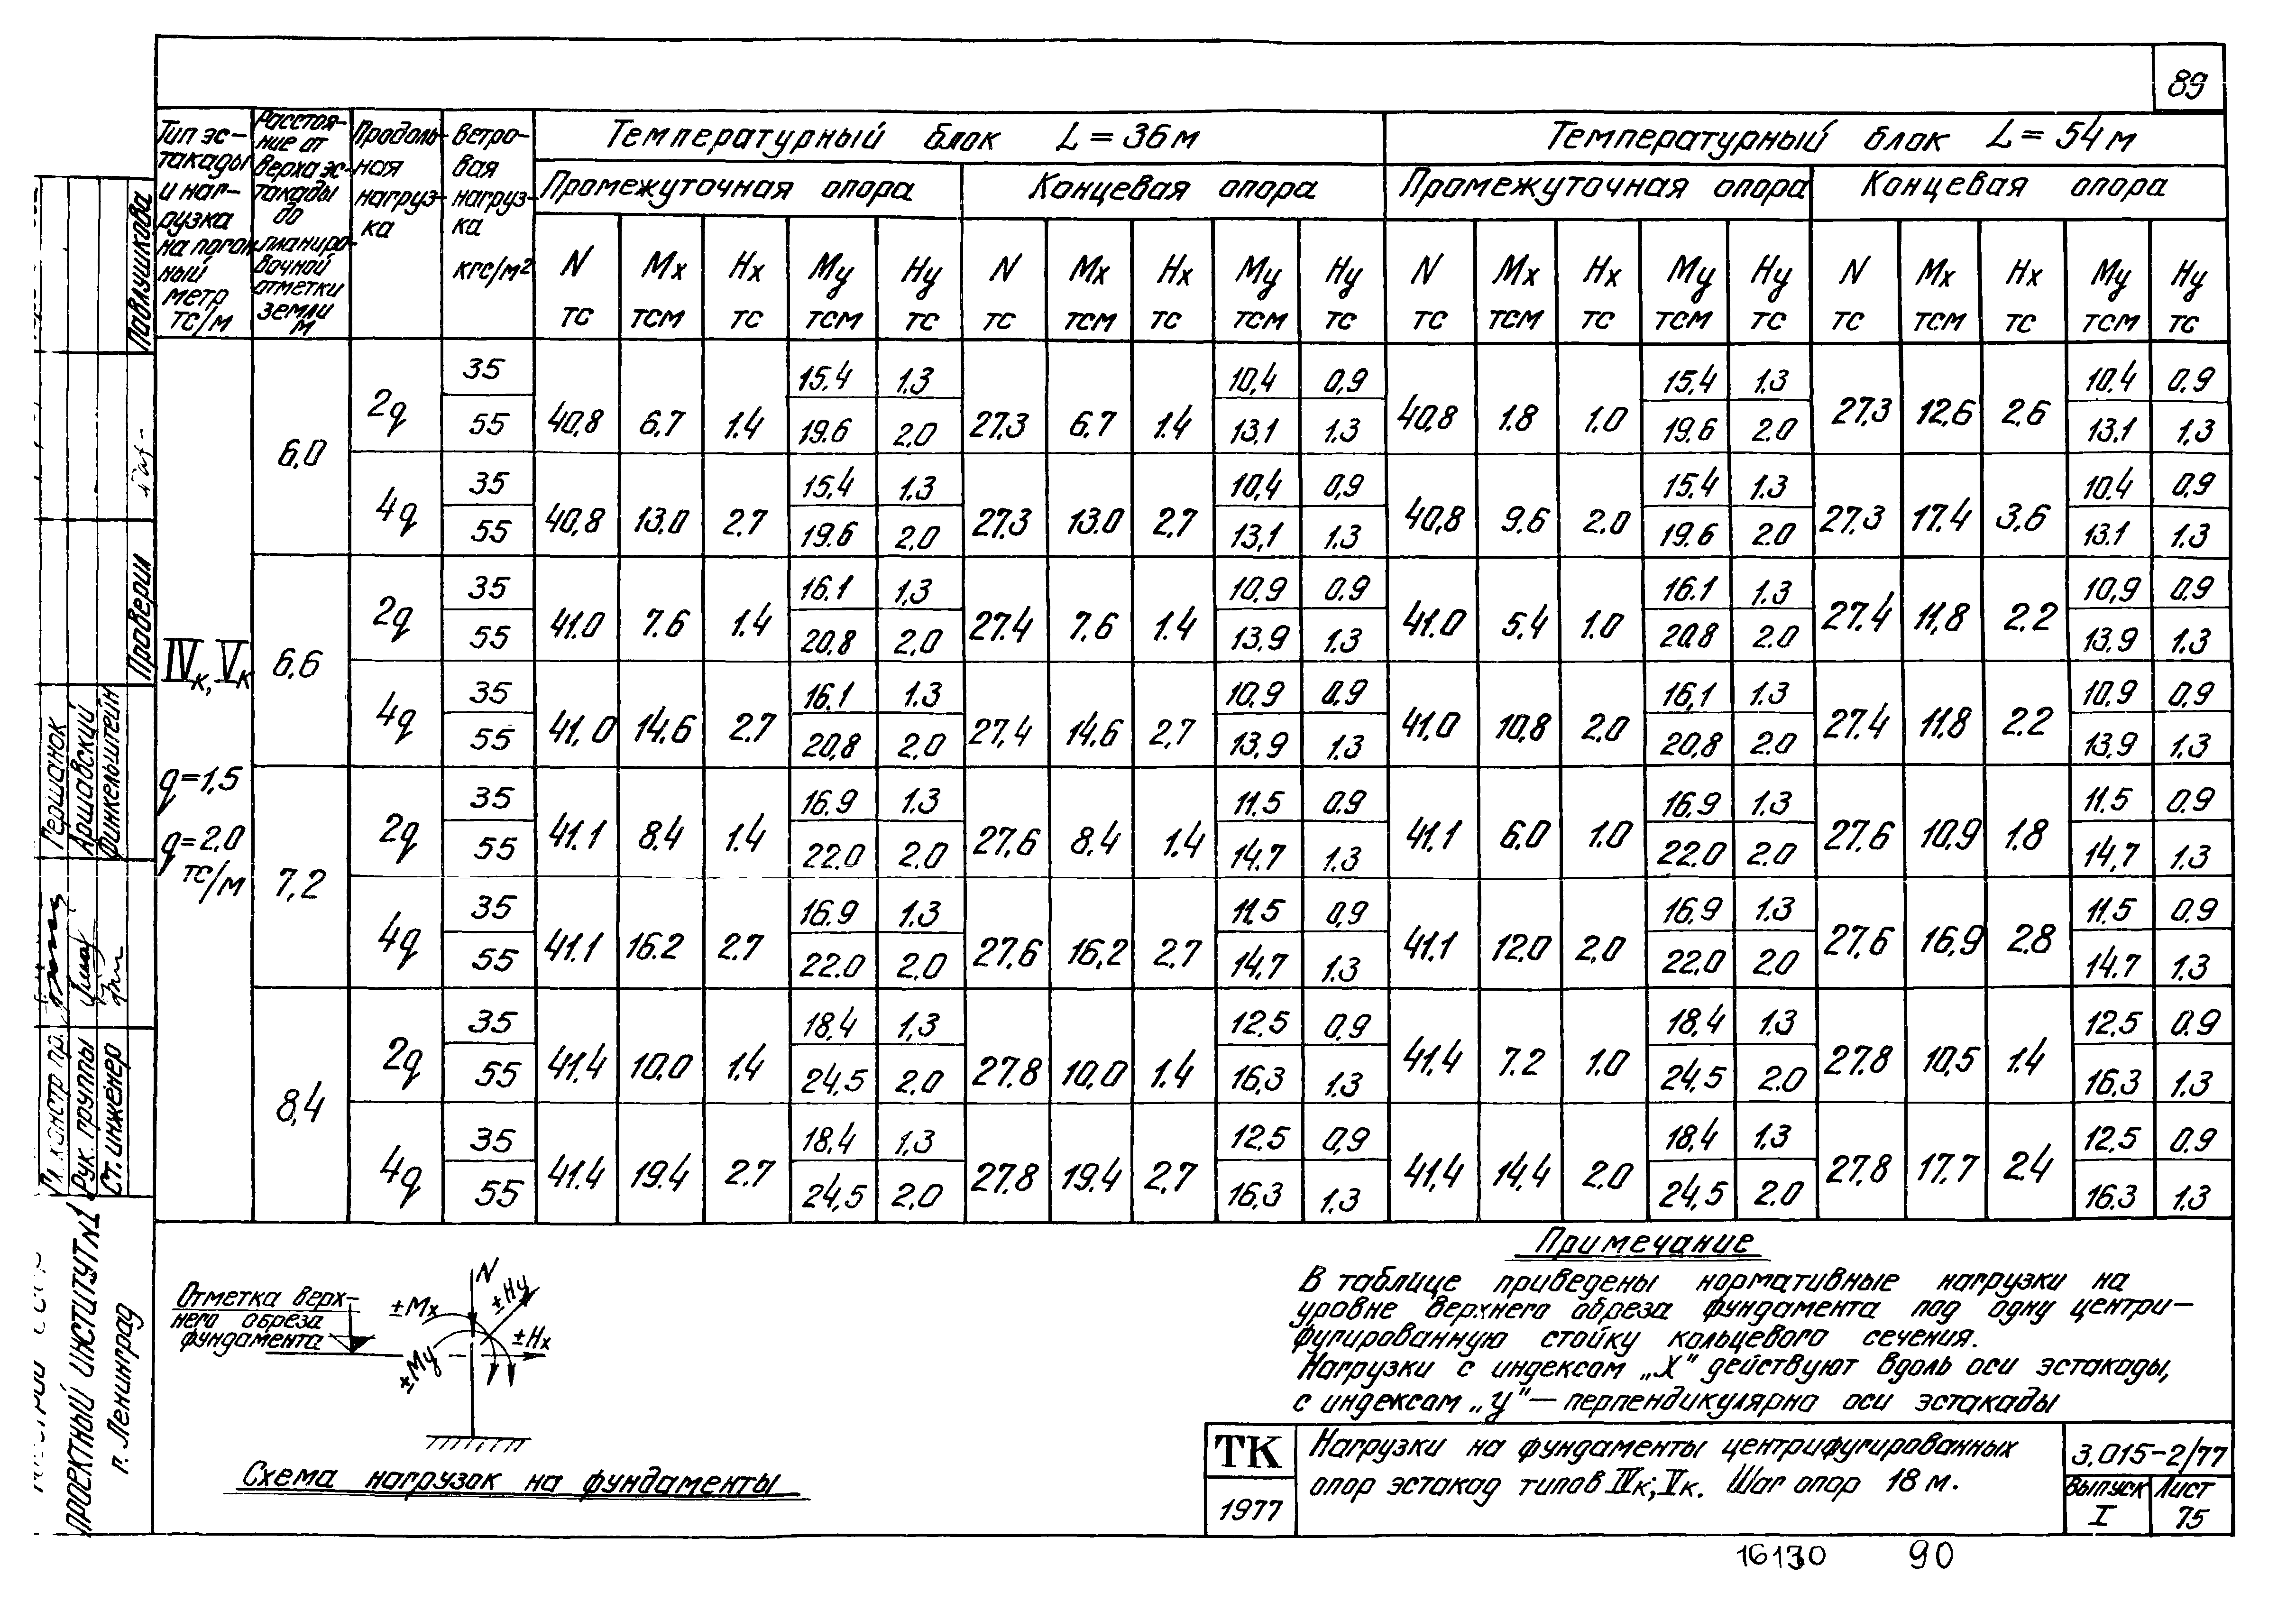 89
Тип эс-
такады
и наг-
рузка
на погон-
ный
метр
тс/м
Расстоя-
ние от
верха эс-
такады
до
планиро-
вочной
отметки
земли
м
Продоль-
ная
нагруз-
ка
Ветро-
вая
нагруз-
ка
кгс/м²
Температурный блок L = 36 м
Температурный блок L = 54 м
Промежуточная опора
Концевая опора
Промежуточная опора
Концевая опора
N Mx Hx My Hy N Mx Hx My Hy N Mx Hx My Hy N Mx Hx My Hy
тс тсм тс тсм тс тс тсм тс тсм тс тс тсм тс тсм тс тс тсм тс тсм тс
IVк, Vк
q=1,5
q=2,0
тс/м
6,0
2q
35 15.4 1.3 10,4 0,9 15.4 1.3 10.4 0.9
40,8 6.7 1.4 27.3 6.7 1.4 40,8 1.8 1.0 27.3 12,6 2.6
55 19.6 2.0 13,1 1.3 19.6 2.0 13.1 1,3
4q
35 15,4 1.3 10,4 0,9 15.4 1.3 10.4 0,9
40,8 13.0 2.7 27.3 13.0 2.7 40,8 9.6 2.0 27.3 17.4 3.6
55 19.6 2,0 13,1 1.3 19.6 2.0 13.1 1.3
6,6
2q
35 16.1 1,3 10.9 0.9 16.1 1.3 10,9 0.9
41.0 7.6 1.4 27.4 7,6 1.4 41.0 5.4 1.0 27.4 11,8 2.2
55 20,8 2,0 13.9 1.3 20.8 2.0 13.9 1.3
4q
35 16.1 1.3 10.9 0.9 16,1 1.3 10.9 0.9
41,0 14.6 2.7 27,4 14.6 2,7 41.0 10,8 2.0 27.4 11.8 2.2
55 20,8 2.0 13.9 1.3 20,8 2.0 13.9 1.3
7,2
2q
35 16.9 1.3 11.5 0.9 16,9 1.3 11.5 0.9
41.1 8.4 1.4 27.6 8,4 1.4 41.1 6.0 1.0 27.6 10,9 1.8
55 22.0 2.0 14.7 1.3 22.0 2.0 14,7 1.3
4q
35 16.9 1.3 11.5 0,9 16.9 1.3 11.5 0.9
41.1 16.2 2.7 27.6 16,2 2.7 41.1 12.0 2.0 27,6 16,9 2.8
55 22.0 2.0 14,7 1.3 22.0 2.0 14.7 1.3
8,4
2q
35 18,4 1,3 12.5 0,9 18,4 1.3 12,5 0.9
41.4 10.0 1.4 27.8 10,0 1.4 41,4 7.2 1.0 27.8 10,5 1.4
55 24,5 2,0 16,3 1.3 24,5 2.0 16,3 1.3
4q
35 18,4 1,3 12.5 0,9 18,4 1.3 12,5 0.9
41.4 19.4 2.7 27.8 19.4 2,7 41,4 14,4 2.0 27,8 17,7 2.4
55 24,5 2,0 16.3 1.3 24,5 2.0 16.3 1.3
Отметка верх-
него обреза
фундамента
N
±Hy
±Mx
±Hx
±My
Схема нагрузок на фундаменты
Примечание
В таблице приведены нормативные нагрузки на
уровне верхнего обреза фундамента под одну центри-
фугированную стойку кольцевого сечения.
Нагрузки с индексом „X" действуют вдоль оси эстакады,
с индексом „y" — перпендикулярна оси эстакады
ТК
1977
Нагрузки на фундаменты центрифугированных
опор эстакад типов IVк; Vк. Шаг опор 18 м.
3.015-2/77
Выпуск
I
Лист
75
16130 90
Павлушкова
Проверил
Гершанок
Аршавский
Финкельштейн
Гл. констр. пр.
Рук. группы
Ст. инженер
ПРОЕКТНЫЙ ИНСТИТУТ №1
г. Ленинград